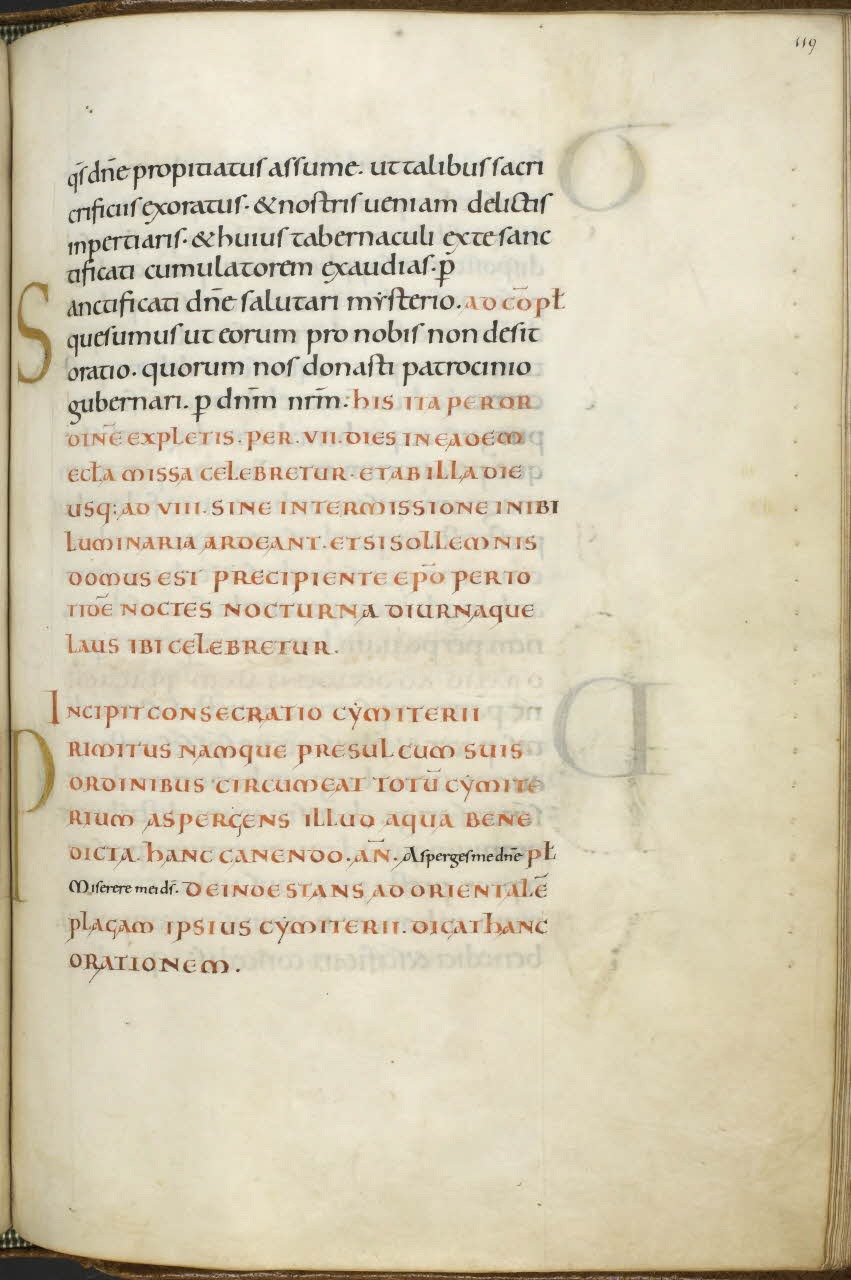 119
q̄s dn̄e propitiatus assume. ut talibus sacri
crificiis exoratus. & nostris ueniam delictis
inpertiaris. & huius tabernaculi ex te sanc
tificati cumulatorem exaudias. p̄
Sanctificati dn̄e salutari mẏsterio. AD CŌPŁ
quesumus ut eorum pro nobis non desit
oratio. quorum nos donasti patrocinio
gubernari. p̄ dnm̄ nrm̄. HIS ITA PER OR
DINĒ EXPLETIS. PER. VII. DIES IN EADEM
ECŁA MISSA CELEBRETUR. ET AB ILLA DIE
USQ: AD VIII. SINE INTERMISSIONE INIBI
LUMINARIA ARDEANT. ET SI SOLLEMNIS
DOMUS EST PRECIPIENTE EPŌ PER TO
TIDĒ NOCTES NOCTURNA DIURNAQUE
LAUS IBI CELEBRETUR.
INCIPIT CONSECRATIO CẎMITERII
PRIMITUS NAMQUE PRESUL CUM SUIS
ORDINIBUS CIRCUMEAT TOTŪ CẎMITE
RIUM ASPERGENS ILLUD AQUA BENE
DICTA. HANC CANENDO. AN̄. Asperges me dn̄e PŁ
Miserere mei ds̄. DEINDE STANS AD ORIENTALĒ
PLAGAM IPSIUS CẎMITERII. DICAT HANC
ORATIONEM.